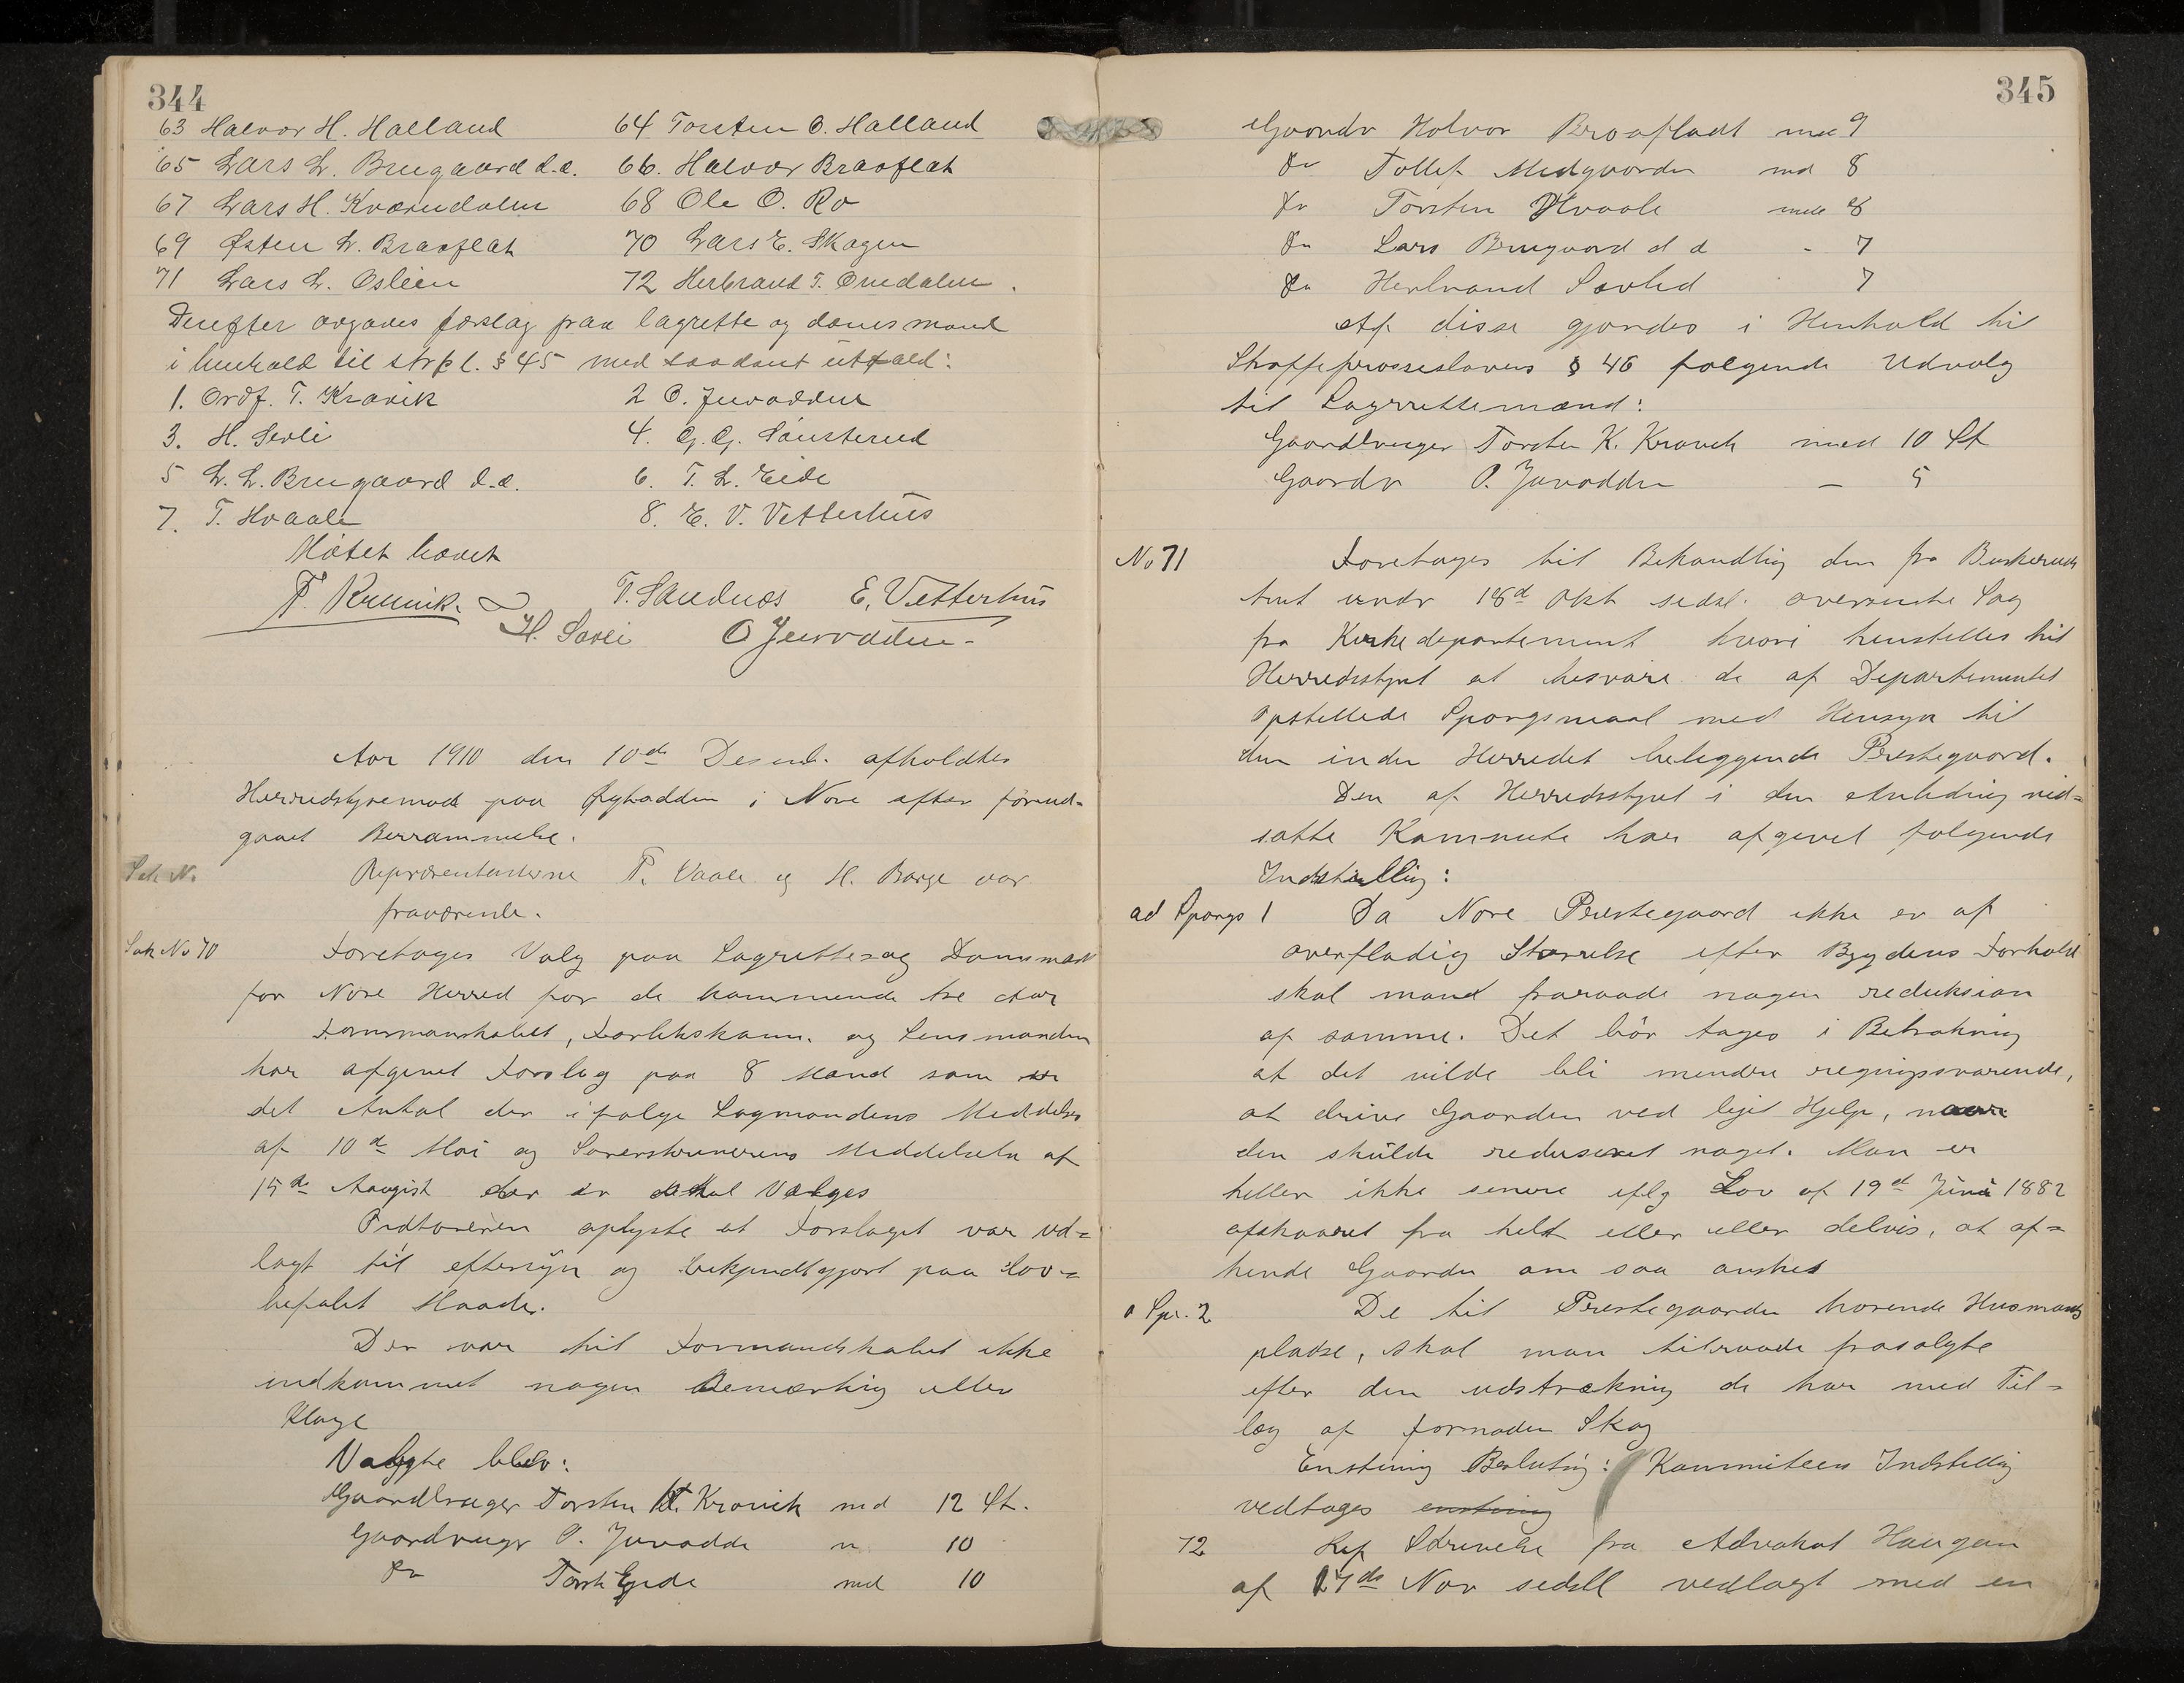 344
63 Halvor H. Halland 64 Torsten O. Halland
65 Lars L. Brugaard d.e. 66. Halvor Braaflat
67 Lars H. Kværndalen 68 Ole O. Ro
69 Østen L. Braaflat 70 Lars E. Skagen
71 Lars L. Oslien 72 Herbrand T. Øiedalen.
Derefter avgaves forslag paa lagrette og domsmænd
i henhold til strpl. § 45 med saadant utfald:
1. Ordf. T. Kravik 2 O. Juvodden
3. H. Sevli 4. G. G. Sønsterud
5 L. L. Brugaard d.e. 6. T. L. Eide
7. T. Hvaale 8. E. V. Vetterhus
Møtet hævet
T. Kravik. T. Skudnes E. Vetterhus
H. Sevli O Juvodden
Aar 1910 den 10de Desemb. afholdtes
Herredstyremøde paa Øyhadden i Nore efter forud-
gaaet Berrammelse.
Sak N.
Representanterne T. Vaale og H. Borge var
fraværende.
Sak No 70 Foretoges Valg paa Lagrette- og Domsmænd
for Nore Herred for de kommende tre Aar
Formanskabet, Forlikskom. og Lensmanden
har afgivet Forslag paa 8 Mand som er
det Antal der ifølge Lagmandens Meddelelse
af 10de Mai og Sorenskriverens Meddelelse af
15de August der skal Vælges
Ordføreren oplyste at Forslaget var ud-
lagt til eftersyn og bekjendtgjort paa Lov-
befalet Maade.
Der var til Formandskabet ikke
indkommet nogen Bemærkning eller
Klage
Valgte blev:
Gaardbruger Torsten K. Kravik med 12 St.
Gaardbruger O. Juvodde " 10
Do Torst. Eide med 10
345
Gaardbr Halvor Braafladt med 9
Do Tollef Midgaarden med 8
Do Torsten Hvaale med 8
Do Lars Brugaard d e - 7
Do Herbrand Sevled 7
Af disse gjordes i Henhold til
Straffeprosseslovens § 46 følgende Udvalg
til Lagrettemænd:
Gaardbruger Torsten K. Kravik med 10 St
Gaardbr O. Juvodden — 5
No 71 Foretoges til Behandling den fra Buskeruds
Amt under 18d Okt sidstl. oversendte Sag
fra Kirkedepartement hvori henstilles til
Herredsstyret at besvare de af Departementet
opstillede Spørgsmaal med Hensyn til
den inden Herredet beliggende Prestegaard.
Den af Herredsstyret i den Anledning ned-
satte Kommite har afgivet følgende
Indstilling:
ad Spørgs 1 Da Nore Prestegaard ikke er af
overflødig Størrelse efter Bygdens Forhold
skal mand fraraade nogen reduksion
af samme. Det bør tages i Betrakning
at det vilde bli mendre regningsvarende,
at drive Gaarden ved leiet Hjelp, naar
den skulde reduseret noget. Man er
heller ikke senere iflg Lov af 19d Juni 1882
afskaaret fra helt eller eller delvis, at af-
hende Gaarden om saa ønskes
" Spr. 2 De til Prestegaarden hørende Husmands
pladse, skal man tilraade frasolgte
efter den udstrækning de har med Til-
læg af fornøden Skog
Enstemig Beslutning: Kommiteens Indstilling
vedtages enstemig
72 Ref Skrivelse fra Advokat Haugan
af 27de Nov sidstl vedlagt med en